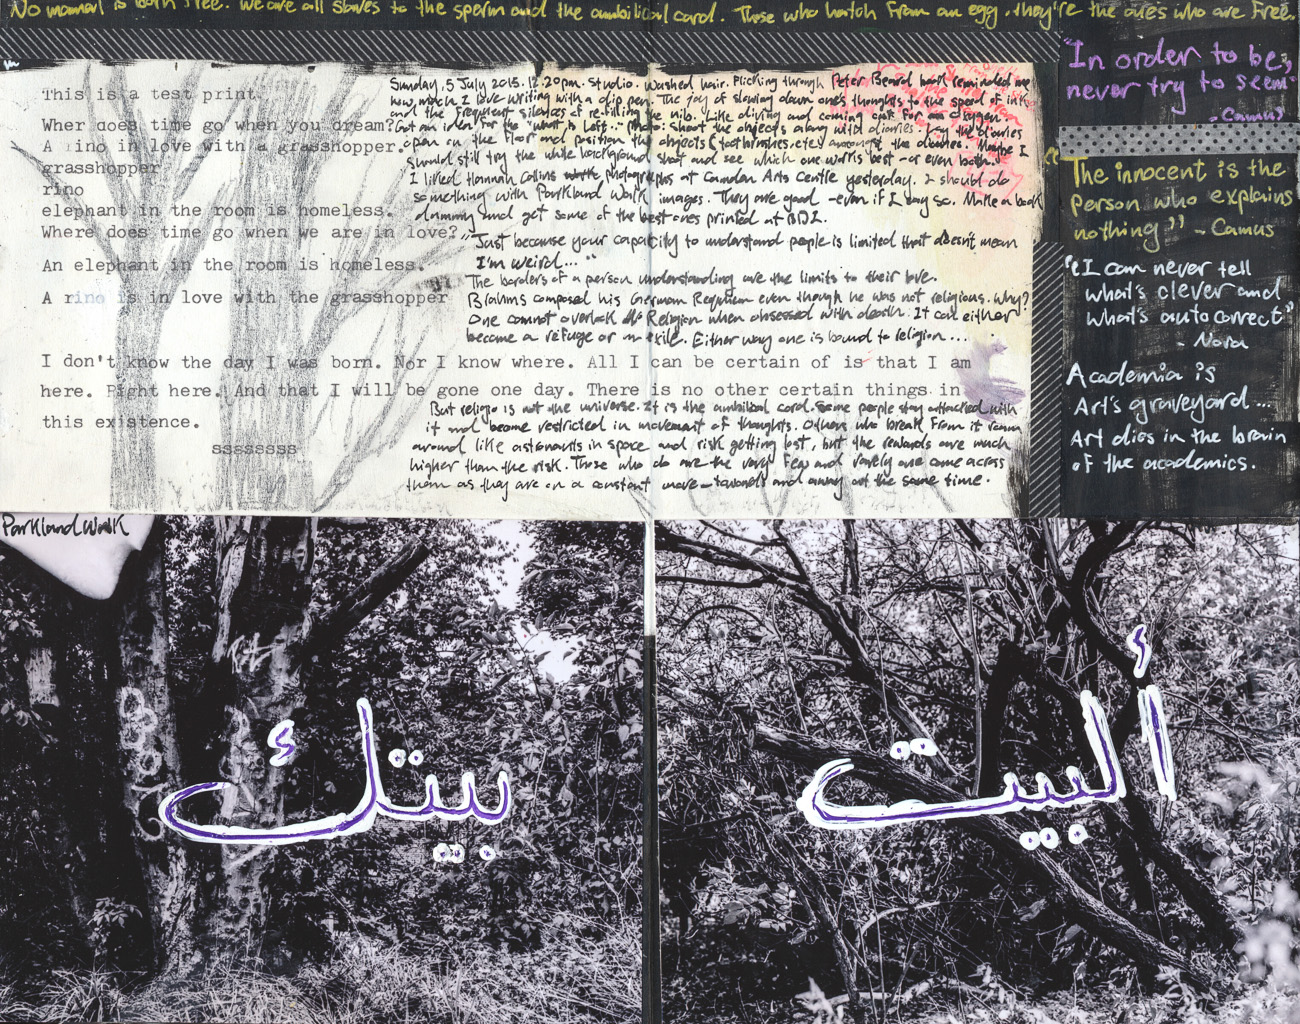 No mammal is born free. We are all slaves to the sperm and the ambilical card. Those who hatch from an egg, they're the ones who are Free.
This is a test print.
Wher does time go when you dream?
A ino in love with a grasshopper.
grasshopper
rino
elephant in the room is homeless.
Where does time go when we are in love?
An elephant in the room is homeless.
A rino is in love with the grasshopper
Sunday, 5 July 2015. 12.20pm. Studio. Washed hair. Flicking through Peter Beard book reminded me
how much I love writing with a dip pen. The joy of slowing down one's thoughts to the speed of ink
and the frequent silences of re-filling the nib. Like diving and coming out for an oxygen.
Got an idea for the "What is Left.." photo: shoot the objects along with diaries. Lay the diaries
open on the floor and position the objects (toothbrushes, etc) amongst the diaries. Maybe I
should still try the white background shot and see which one works best - or even both.
I liked Hannah Collins photographs at Camden Arts Centle yesterday. I should do
something with Parkland Walk images. They are good - even if I say so. Make a book
dummy and get some of the best ones printed at BDI.
"Just because your capacity to understand people is limited that doesn't mean
I'm weird..."
The borders of a person understanding are the limits to their love.
Brahms composed his German Requiem even though he was not religious. Why?
One cannot overlook Religion when obsessed with death. It can either
become a refuge or an exile. Either way one is bound to religion....
I don't know the day I was born. Nor I know where. All I can be certain of is that I am
here. Right here. And that I will be gone one day. There is no other certain things in
this existence.
ssssssss
But religio is not the universe. It is the ambilical card. Some people stay attached with
it and become restricted in movement of thoughts. Others who break from it roam
around like astronauts in space and risk getting lost, but the rewards are much
higher than the risk. Those who do are the very few and rarely one come across
them as they are on a constant move - towards and away at the same time.
"In order to be,
never try to seem"
- Camus
"The innocent is the
person who explains
nothing" - Camus
"I can never tell
what's clever and
what's autocorrect"
- Nora
Academia is
Art's graveyard...
Art dies in the brain
of the academics.
Parkland Walk
ألبيت
بيتك